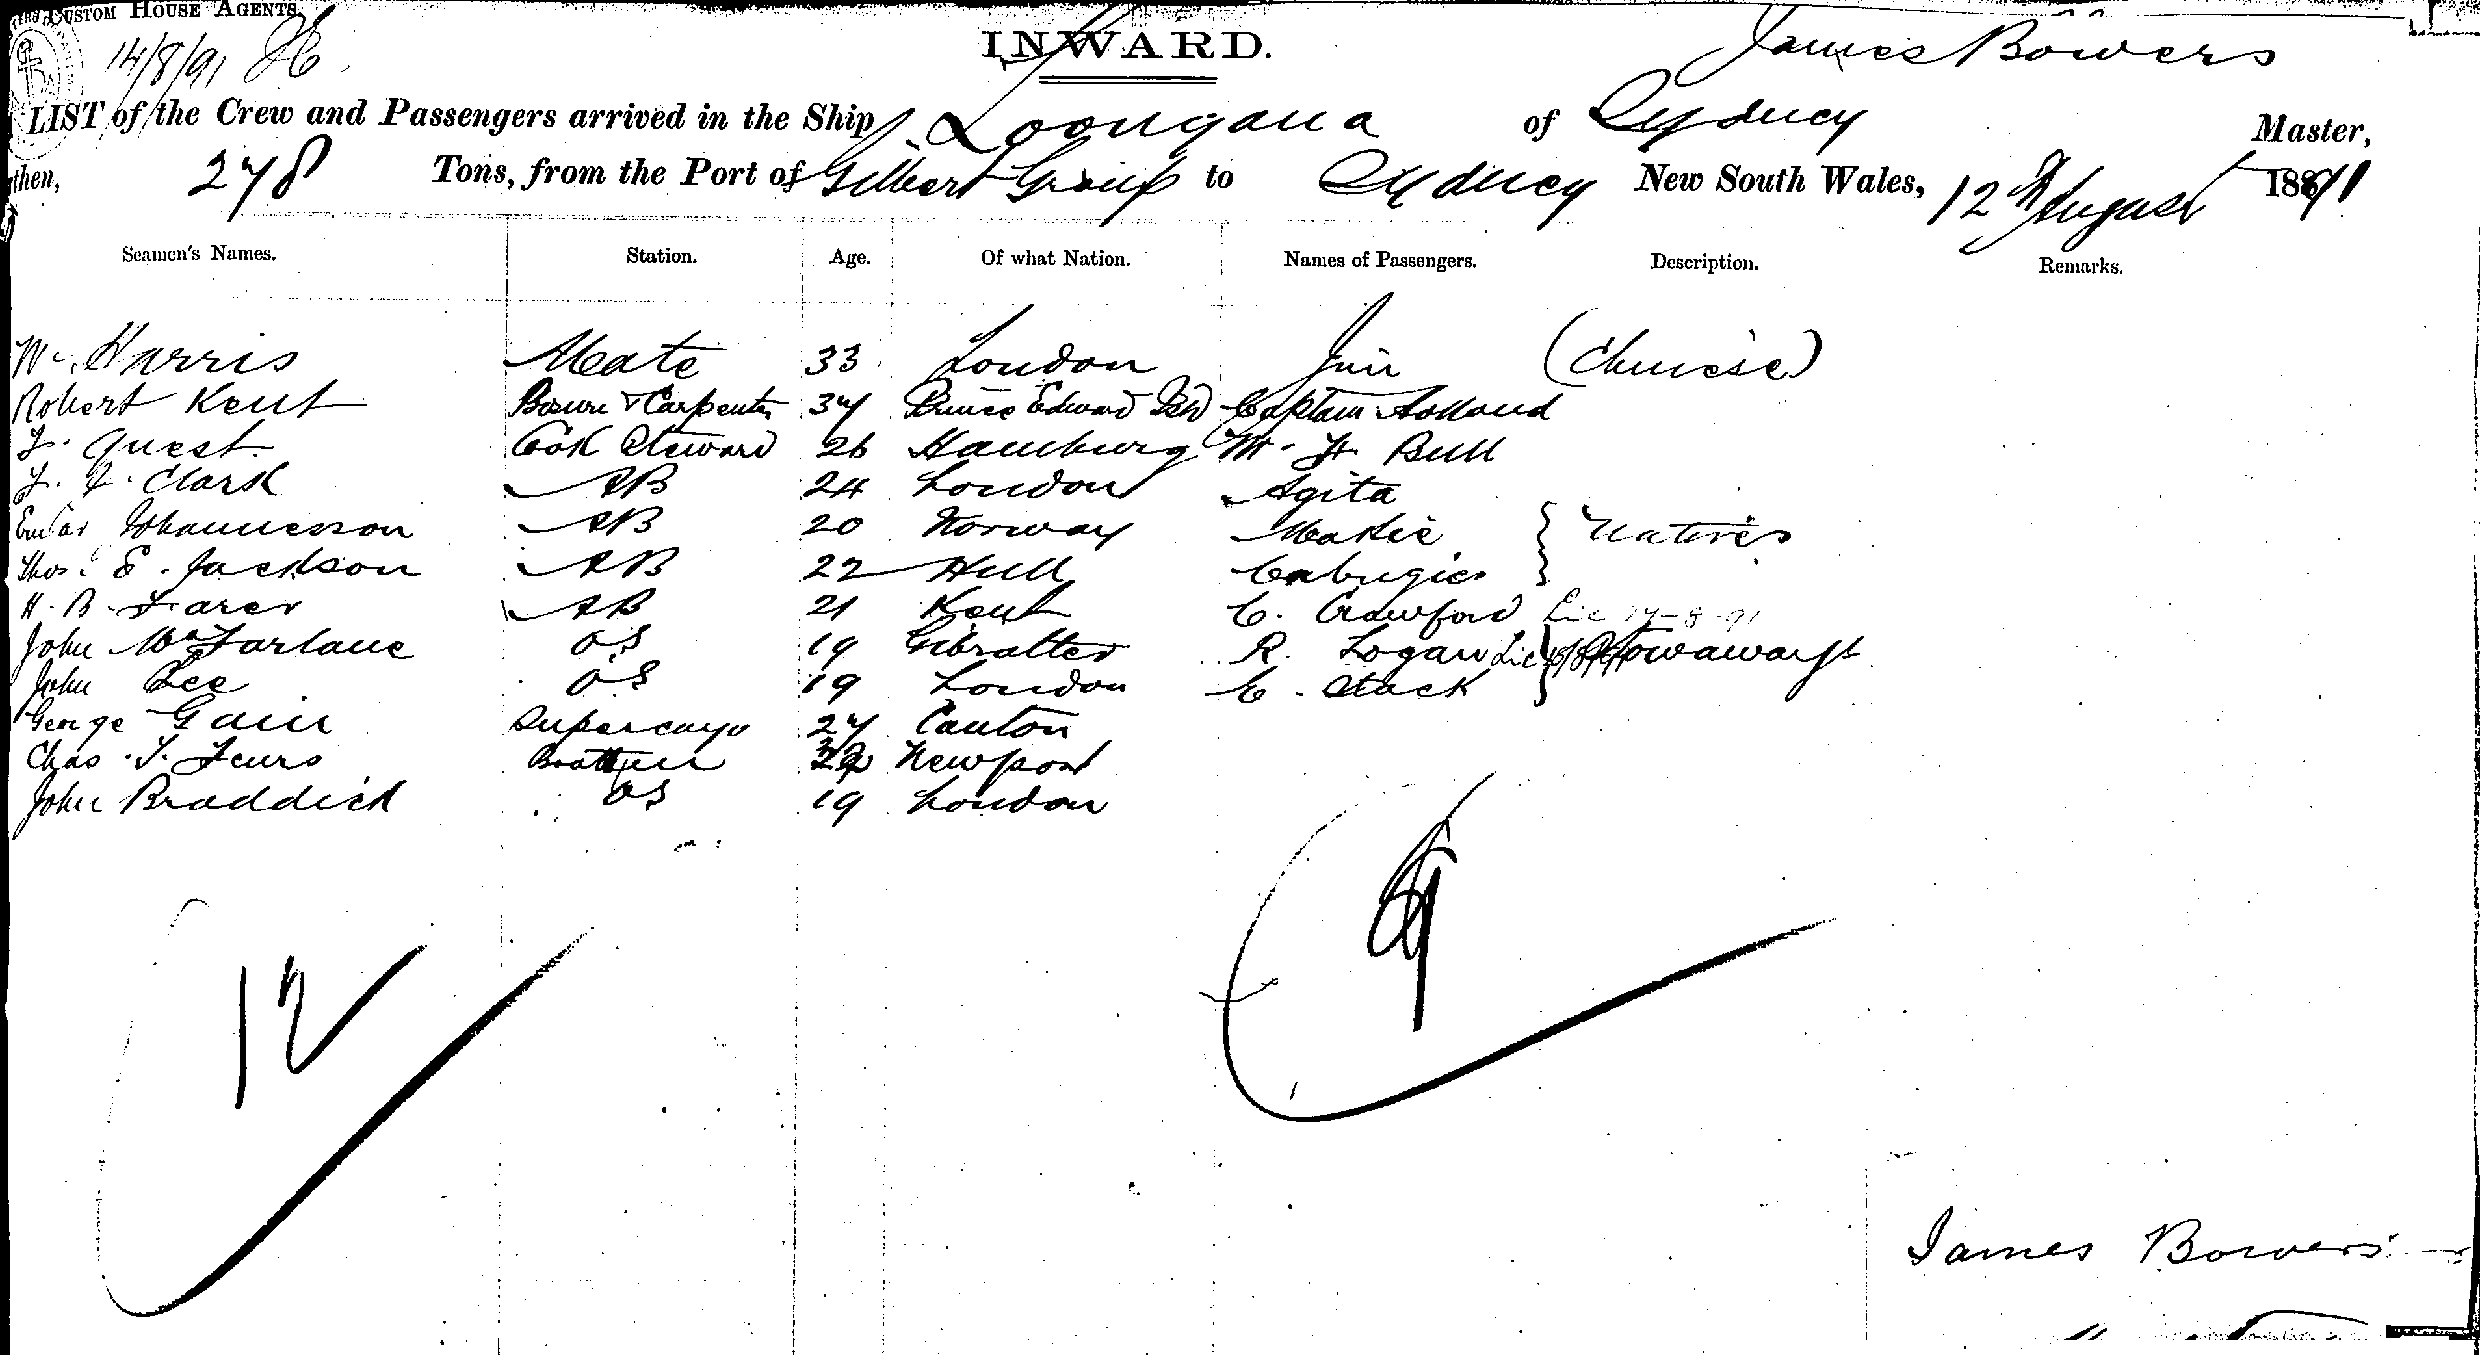 CUSTOM HOUSE AGENTS.
14/8/91
INWARD.
James Bowers
LIST of the Crew and Passengers arrived in the Ship Loongana of Sydney Master,
then, 278 Tons, from the Port of Gilbert Group to Sydney New South Wales, 12th August 1891
Seamen's Names. Station. Age. Of what Nation. Names of Passengers. Description. Remarks.
W. Harris Mate 33 London Jim (Chinese)
Robert Kent Bosun & Carpenter 37 Prince Edward Isld Captain Holland
F. Quest Cook Steward 26 Hamburg W. H. Bull
F. J. Clark AB 24 London Agita
Einar Johannesson AB 20 Norway Makie } Natives
Thos. E. Jackson AB 22 Hull
H. B. AB 21 Kent C. Crawford Lic 17-8-91
John McFarlane OS 19 Gibralter R. Logan Lic } Stowaways
John Lee OS 19 London C. Stack
George Gain Supercargo 27 Canton
Chas. T. Boatman 32 Newport
John Braddick OS 19 London
12
9
James Bowers